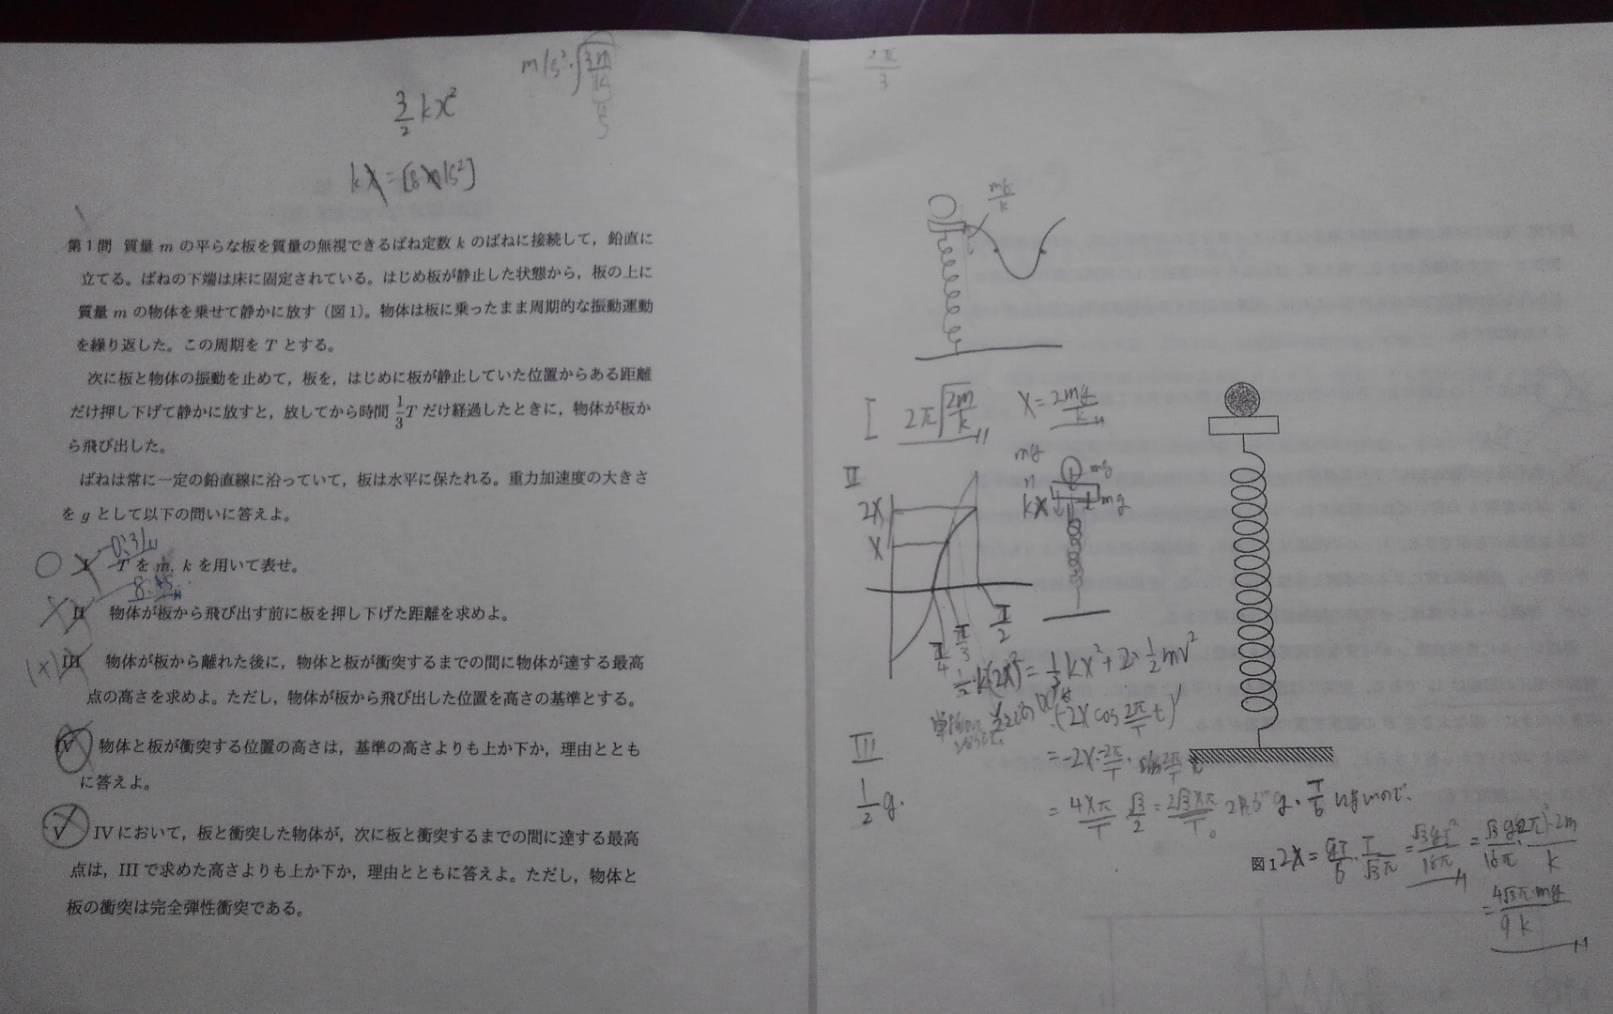 m/s²・√(2m/k)
3/2 kx²
kx=[g m/s²]
第1問 質量 m の平らな板を質量の無視できるばね定数 k のばねに接続して，鉛直に
立てる。ばねの下端は床に固定されている。はじめ板が静止した状態から，板の上に
質量 m の物体を乗せて静かに放す（図1）。物体は板に乗ったまま周期的な振動運動
を繰り返した。この周期を T とする。
次に板と物体の振動を止めて，板を，はじめに板が静止していた位置からある距離
だけ押し下げて静かに放すと，放してから時間 1/3 T だけ経過したときに，物体が板か
ら飛び出した。
ばねは常に一定の鉛直線に沿っていて，板は水平に保たれる。重力加速度の大きさ
を g として以下の問いに答えよ。
I T を m, k を用いて表せ。
II 物体が板から飛び出す前に板を押し下げた距離を求めよ。
III 物体が板から離れた後に，物体と板が衝突するまでの間に物体が達する最高
点の高さを求めよ。ただし，物体が板から飛び出した位置を高さの基準とする。
IV 物体と板が衝突する位置の高さは，基準の高さよりも上か下か，理由ととも
に答えよ。
V IVにおいて，板と衝突した物体が，次に板と衝突するまでの間に達する最高
点は，IIIで求めた高さよりも上か下か，理由とともに答えよ。ただし，物体と
板の衝突は完全弾性衝突である。
2π/3
mg/k
I 2π√(2m/k) x=2mg/k
II
2x
x
π/4 π/3 π/2
mg
kx
mg
mg
1/2・k(2x)²=1/2kx²+2・1/2mv²
(-2x cos 2π/T t)'
=-2x・2π/T・sin 2π/T t
=4xπ/T・√3/2=2√3xπ/T
III
1/2 g.
図1
2x=gT/6・T/√3π
=4√3π・mg/9k